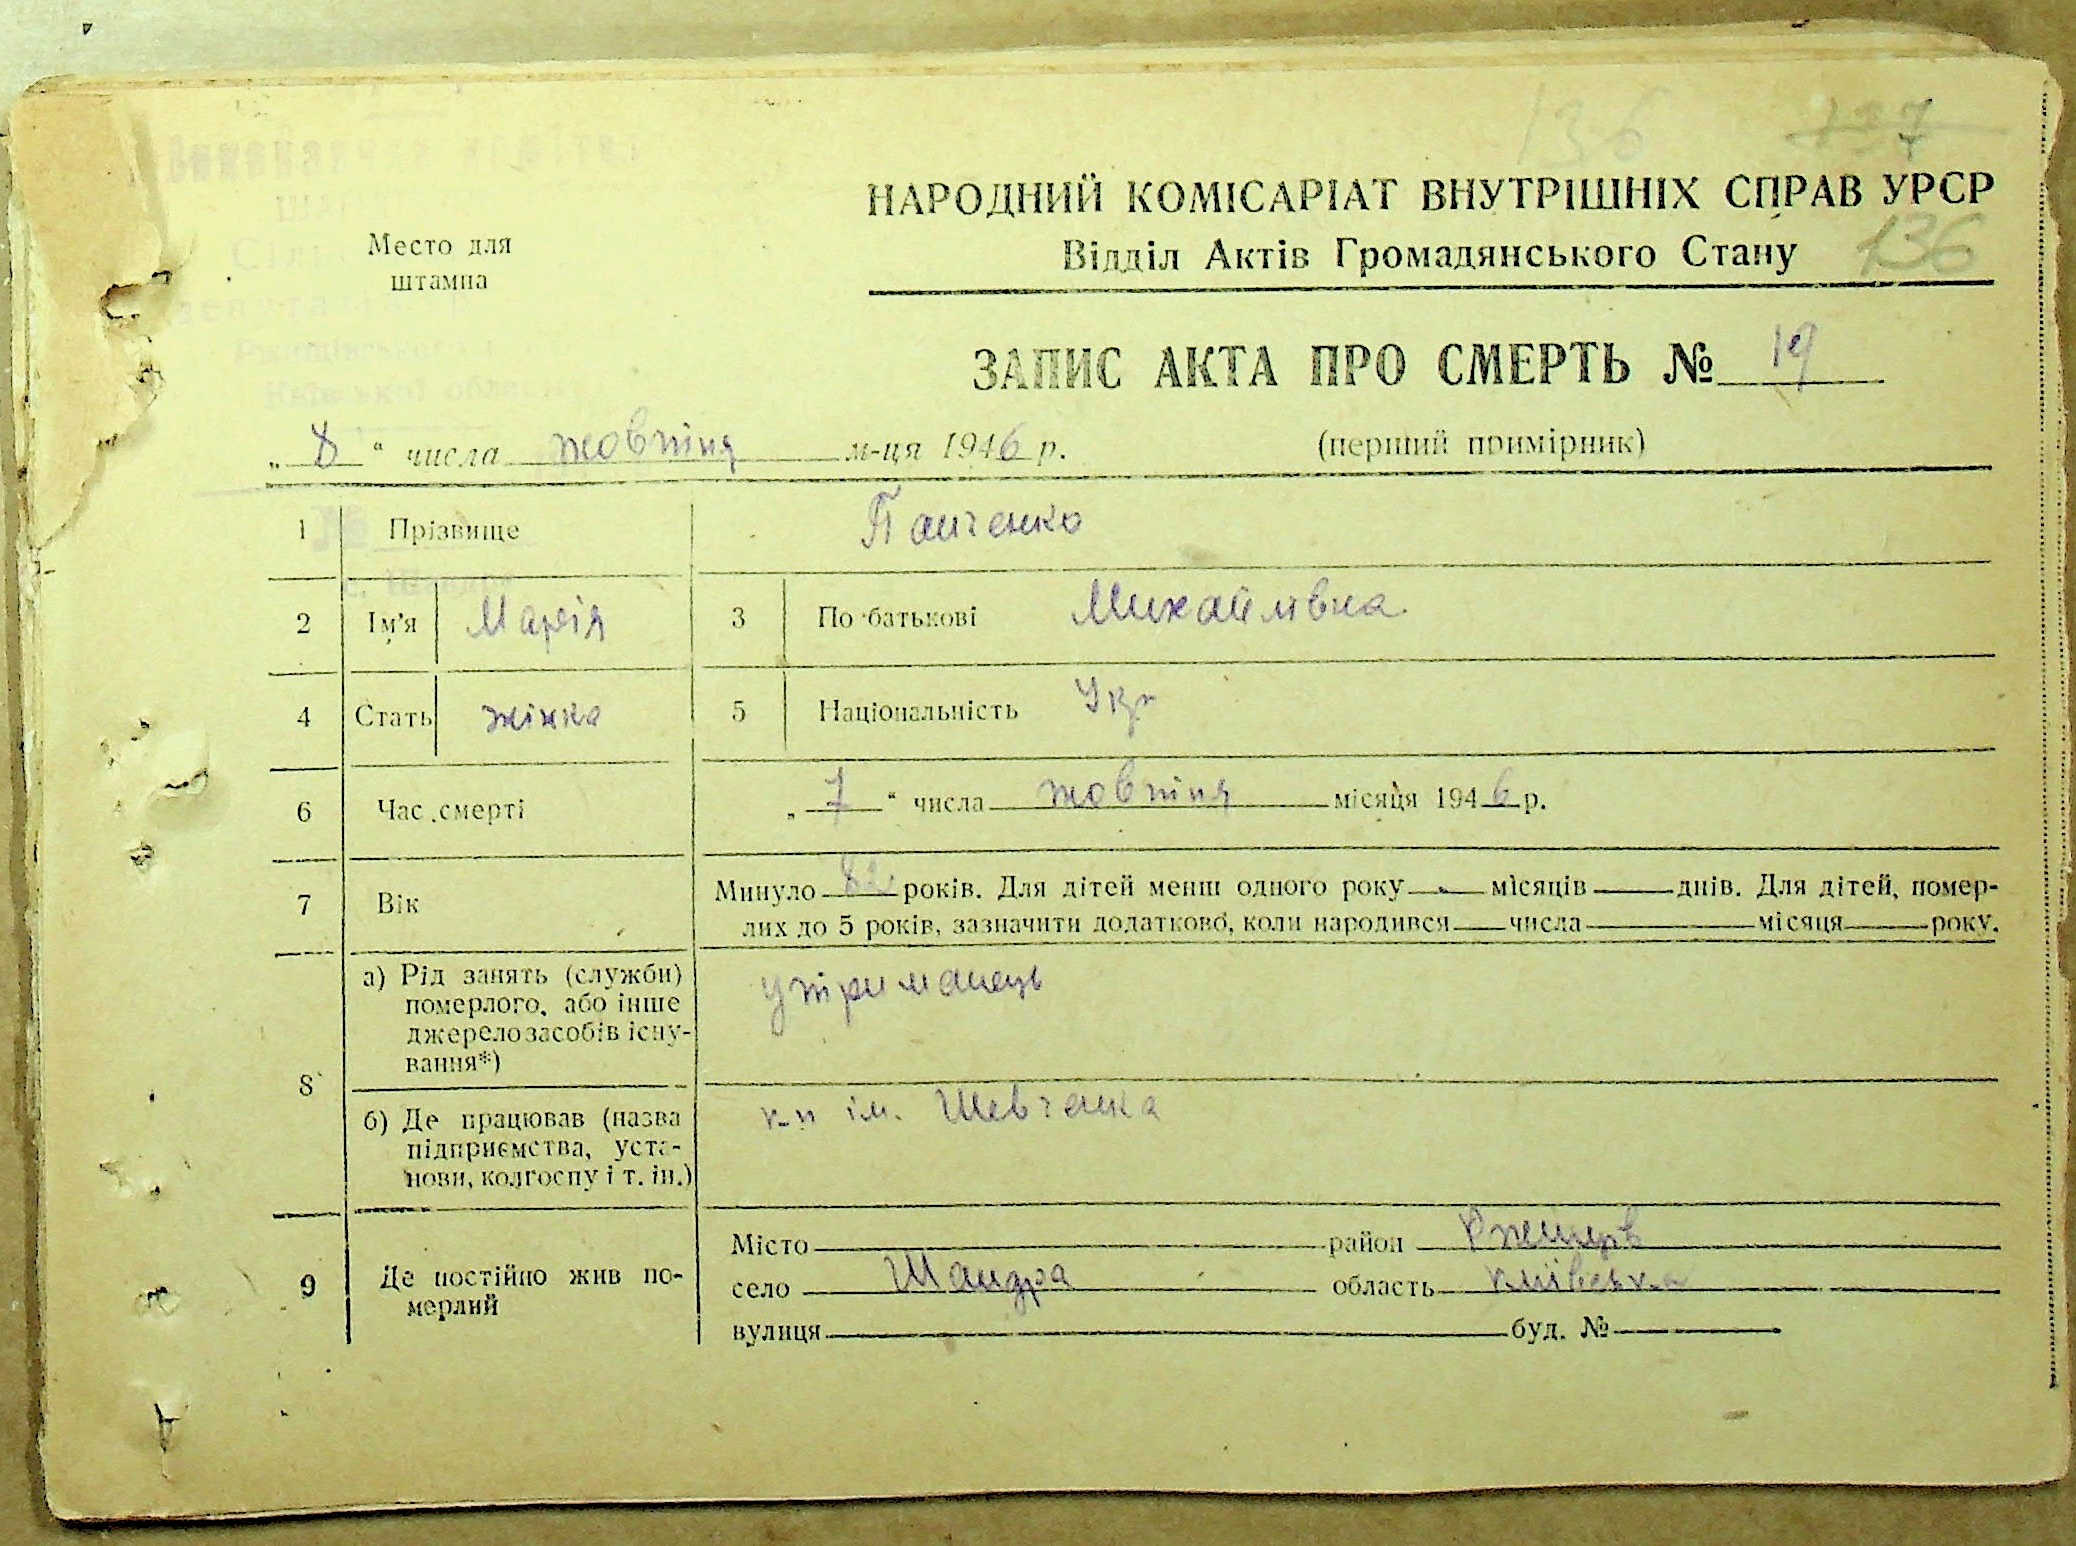 136 137
НАРОДНИЙ КОМІСАРІАТ ВНУТРІШНІХ СПРАВ УРСР
Место для штампа
Відділ Актів Громадянського Стану 136
ЗАПИС АКТА ПРО СМЕРТЬ № 19
„ 8 “ числа жовтня м-ця 1946 р. (перший примірник)
1 Прізвище Панченко
2 Ім'я Марія 3 По батькові Михайлівна
4 Стать жінка 5 Національність Укр
6 Час смерті „ 7 “ числа жовтня місяця 1946 р.
7 Вік Минуло 82 років. Для дітей менш одного року місяців днів. Для дітей, помер-
лих до 5 років, зазначити додатково, коли народився числа місяця року.
8 а) Рід занять (служби) утриманець
померлого, або інше
джерело засобів існу-
вання*)
б) Де працював (назва к-п ім. Шевченка
підприємства, уста-
нови, колгоспу і т. ін.)
9 Де постійно жив по-
мерлий
Місто район Ржищів
село Шандра область Київська
вулиця буд. №